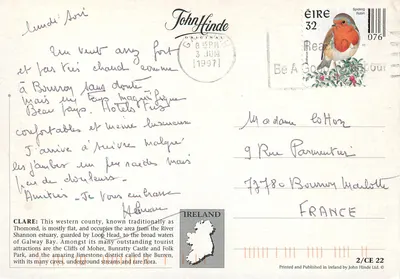 lundi soir
John Hinde
ORIGINAL
ÉIRE
32
076
8 PM
3 JUN
1997
Read
Be A Go
Un vent assez fort
et pas très chaud comme
à Bourron sans doute
mais un temps magnifique
Beau pays. Hotels très
confortables et même luxueux
J'arrive à suivre malgré
les jambes un peu raides mais
peu de douleurs.
Amitiés - Je vous embrasse
Madame Cotton
9 Rue Parmentier
77780 Bourron Marlotte
FRANCE
CLARE: This western county, known traditionally as
Thomond, is mostly flat, and occupies the area from the River
Shannon estuary, guarded by Loop Head, to the broad waters
of Galway Bay. Amongst its many outstanding tourist
attractions are the Cliffs of Moher, Bunratty Castle and Folk
Park, and the amazing limestone district called the Burren,
with its many caves, underground streams and rare flora.
IRELAND
2/CE 22
Printed and Published in Ireland by John Hinde Ltd. ©